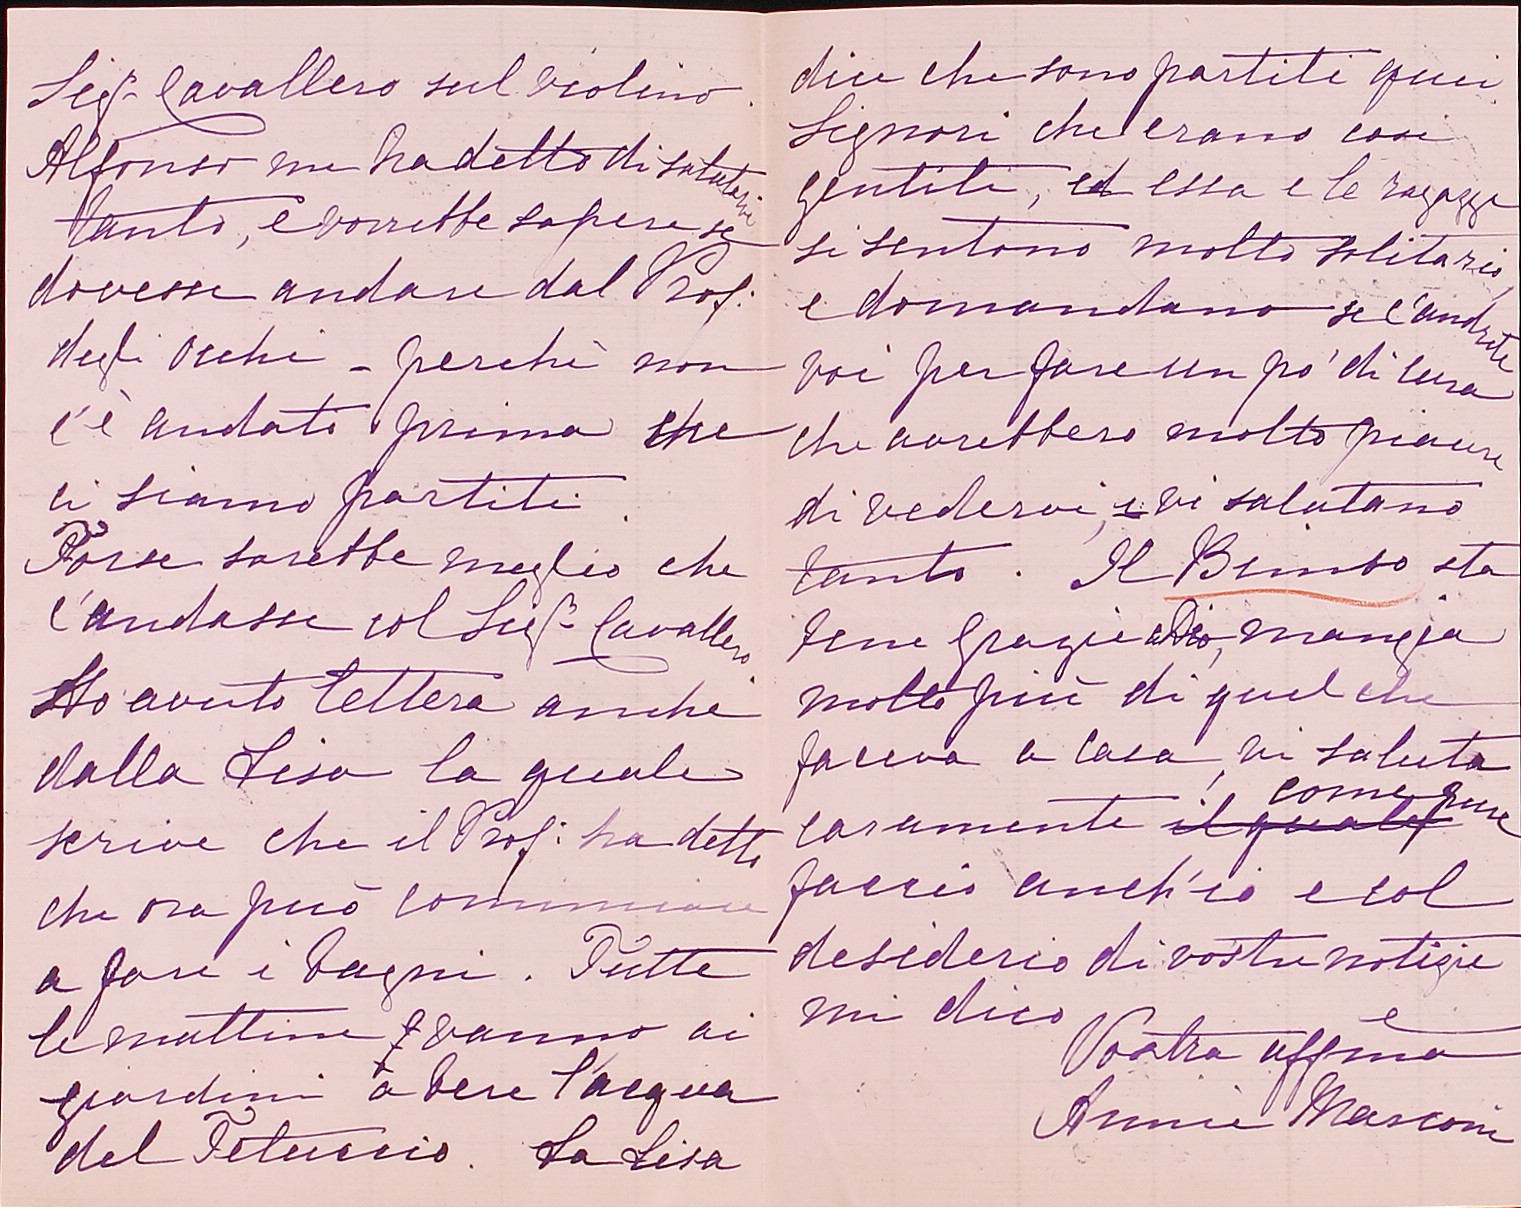 Sigr Cavallero sul violino.
Alfonso me ha detto di salutarvi
tanto, e vorrebbe sapere se
dovesse andare dal Prof.
degli occhi - perchè non
c'è andato prima che
ci siamo partiti.
Forse sarebbe meglio che
c'andasse col Sigr Cavallero
Ho avuto lettera anche
dalla Lisa la quale
scrive che il Prof: ha detto
che ora può comminciare
a fare i bagni. Tutte
le mattine vanno ai
giardini a bere l'acqua
del Tetuccio. La Lisa
dice che sono partiti quei
Signori che erano cosi
gentili, ed essa e le ragazze
si sentono molto solitario,
e domandano se c'andrete
voi per fare un po' di cura
che avrebbero molto piacere
di vedervi, e vi salutano
tanto. Il Bimbo sta
bene grazie a Dio, mangia
molto più di quel che
faceva a casa, vi saluta
caramente il quale come pure
faccio anch'io e col
desiderio di vostre notizie
mi dico
Vostra affma
Annie Marconi